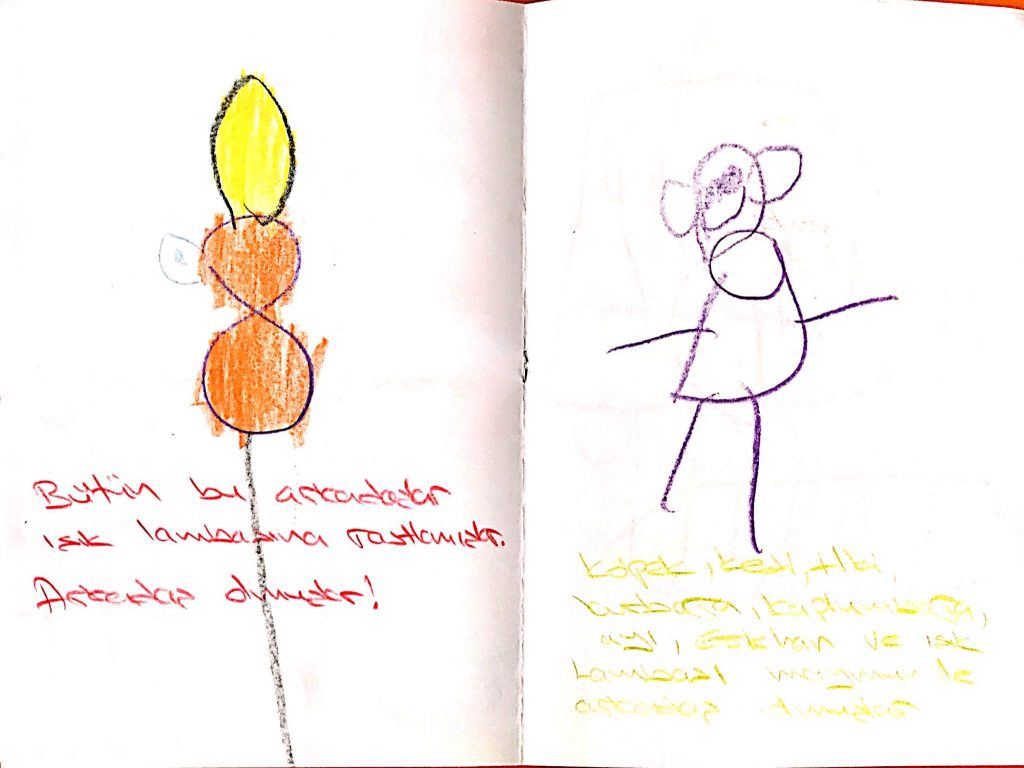 Bütün bu arkadaşlar
ışık lambasına rastlamışlar.
Arkadaş olmuşlar!
köpek, kedi, tilki,
kurbağa, kaplumbağa,
ayı, ve ışık
lambası maymunla
arkadaş olmuşlar